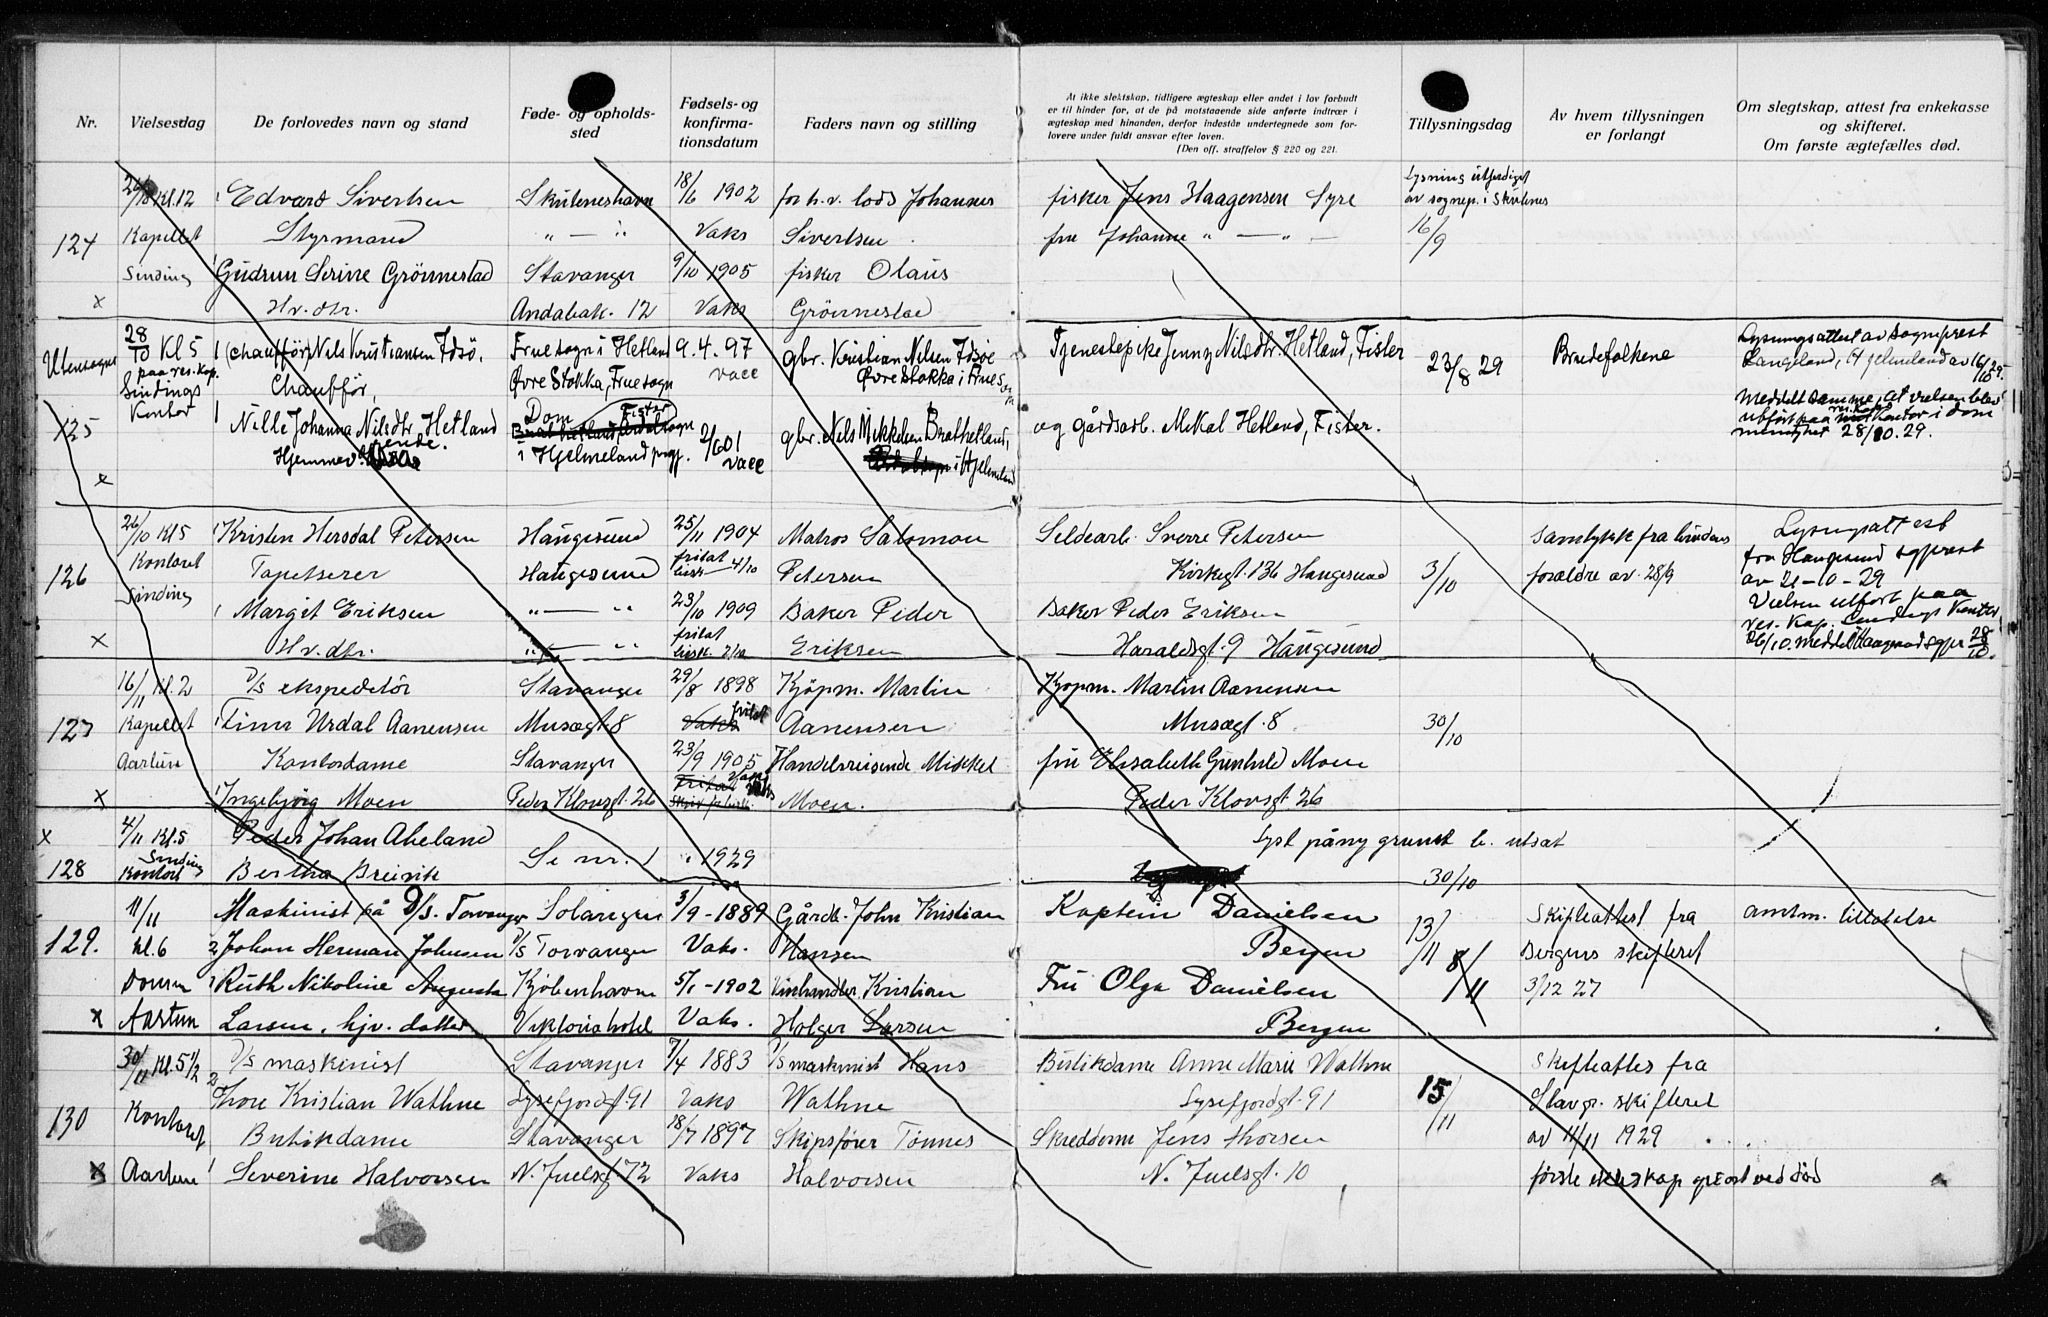 Nr.
Vielsesdag
De forlovedes navn og stand
Føde- og opholds-
sted
Fødsels- og
konfirma-
tionsdatum
Faders navn og stilling
At ikke slektskap, tidligere ægteskap eller andet i lov forbudt
er til hinder for, at de på motstaaende side anførte indtrær i
ægteskap med hinanden, derfor indestår undertegnede som for-
lovere under fuldt ansvar efter loven.
(Den off. straffelov § 220 og 221.
Tillysningsdag
Av hvem tillysningen
er forlangt
Om slegtskap, attest fra enkekasse
og skifteret.
Om første ægtefælles død.
124
Kl. 12
Kapellet
Sinding
x
Edvard Sivertsen
Styrmand
Gudrun Serine Grönnestad
Hv. dtr.
Skudeneshavn
" — "
Stavanger
Andabak. 12
18/6 1902
Vaks
9/10 1905
Vaks
forh.v. lods Johannes
Sivertsen
fisker Olaus
Grönnestad
fisker Jens Haagensen Syre
fru Johanne " — " —
Lysning utferdiget
av sognep. i Skudenes
16/9
Utensogns
125
x
28/10 Kl 5
paa res. kap.
Sindings
Kontor
(chauffør) Nils Kristiansen Idsö,
Chauffør,
Nille Johanna Nilsdtr. Hetland
Hjemmeværende.
Fruesogn i Hetland
Øvre Stokka, Fruesogn
Dom
Fister
i Hjelmeland pgj.
9. 4. 97
vacc
2/6 01
vacc
gbr. Kristian Nilsen Idsøe
Øvre Stokka i Frues
gbr. Nils Mikkelsen Brathetland,
i Hjelmeland
Tjenestepike Jenny Nilsdtr. Hetland, Fister
og gårdsarb. Mikal Hetland, Fister.
23/8 29
Brudefolkene
Lysningsattest av sogneprest
Langeland, Hjelmeland av 16/10 29.
Meddelt samme, at vielsen blev
utført paa res. kap. Kontor i dom
menighet 28/10. 29.
126
x
26/10 Kl 5
Kontoret
Sinding
Kristen Hersdal Petersen
Tapetserer
Margit Eriksen
Hv. dtr.
Haugesund
Haugesund
" — "
" — "
25/11 1904
fritat
4/10
23/10 1909
fritat
Matros Salomon
Petersen
Baker Peder
Eriksen
Sildearb. Sverre Petersen
Kirkegt. 136 Haugesund
Baker Peder Eriksen
Haraldsgt. 9 Haugesund
3/10
Samtykke fra brudens
forældre av 28/9
Lysningsattest
fra Haugesund sogneprest
av 21-10-29
Vielsen utført paa
res. kap. Sindings Kontor
26/10. meddelt Haugesund sogpr 28/10.
127
x
16/11 Kl. 2
Kapellet
Aartun
D/S ekspeditör
Finn Urdal Aanensen
Kontordame
Ingebjörg Moen
Stavanger
Musægt. 8
Stavanger
Peder Klowsgt. 26
29/8 1898
fritat
23/9 1905
Vaks
Kjöpm. Martin
Aanensen
Handelsreisende Mikkel
Moen.
Kjöpm. Martin Aanensen
Musægt. 8
fru Elisabeth Gunhild Moen
Peder Klowsgt 26
30/10
x
128
4/11 Kl. 5
Sinding
Kontoret
Peder Johan Aheland
Bertha Breivik
Se nr. 1
1929
Lyst påny grunnet b. utsat
30/10
129.
x
11/11
Kl. 6
Domen
Aartun
Maskinist på D/S. Torvanger
Johan Herman Johnsen
Ruth Nikoline Augusta
Larsen, hjv. datter
D/S Torvanger
Kjöbenhavn
Viktoria hotel
3/9 - 1889
Vaks.
5/1 - 1902
Vaks.
Gårdb. John Kristian
Hansen
Vinhandler Kristian
Holger Larsen
Kaptein Danielsen
Bergen
Fru Olga Danielsen
Bergen
13/11
8/11
Skifteattest fra
Bergens skifteret
3/12 27
amtm. tillatelse
130
x
30/11 Kl. 5 1/2
Kontoret
Aartun
D/S maskinist
Thore Kristian Wathne
Butikdame
Severine Halvorsen
Stavanger
Lysefjordgt. 91
Stavanger
N. Juelsgt. 72
7/4 1883
Vaks
18/7 1897
Vaks
D/S maskinist Hans
Wathne
Skipsfører Tönnes
Halvorsen
Butikdame Anne Marie Wathne
Lysefjordgt. 91
Skredderm Jens Thorsen
N. Juelsgt. 10
15/11
Skifteattes fra
Stavgr. skifteret
av 11/11 1929
første ekteskap opløst ved död